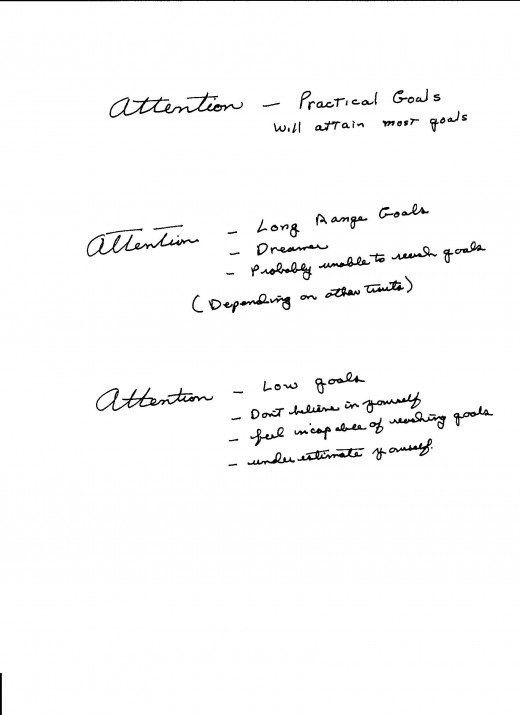 Attention - Practical Goals
Will attain most goals
Attention - Long Range Goals
- Dreamer
- Probably unable to reach goals
(Depending on other traits)
Attention - Low goals
- Don't believe in yourself
- feel incapable of reaching goals
- under estimate yourself.